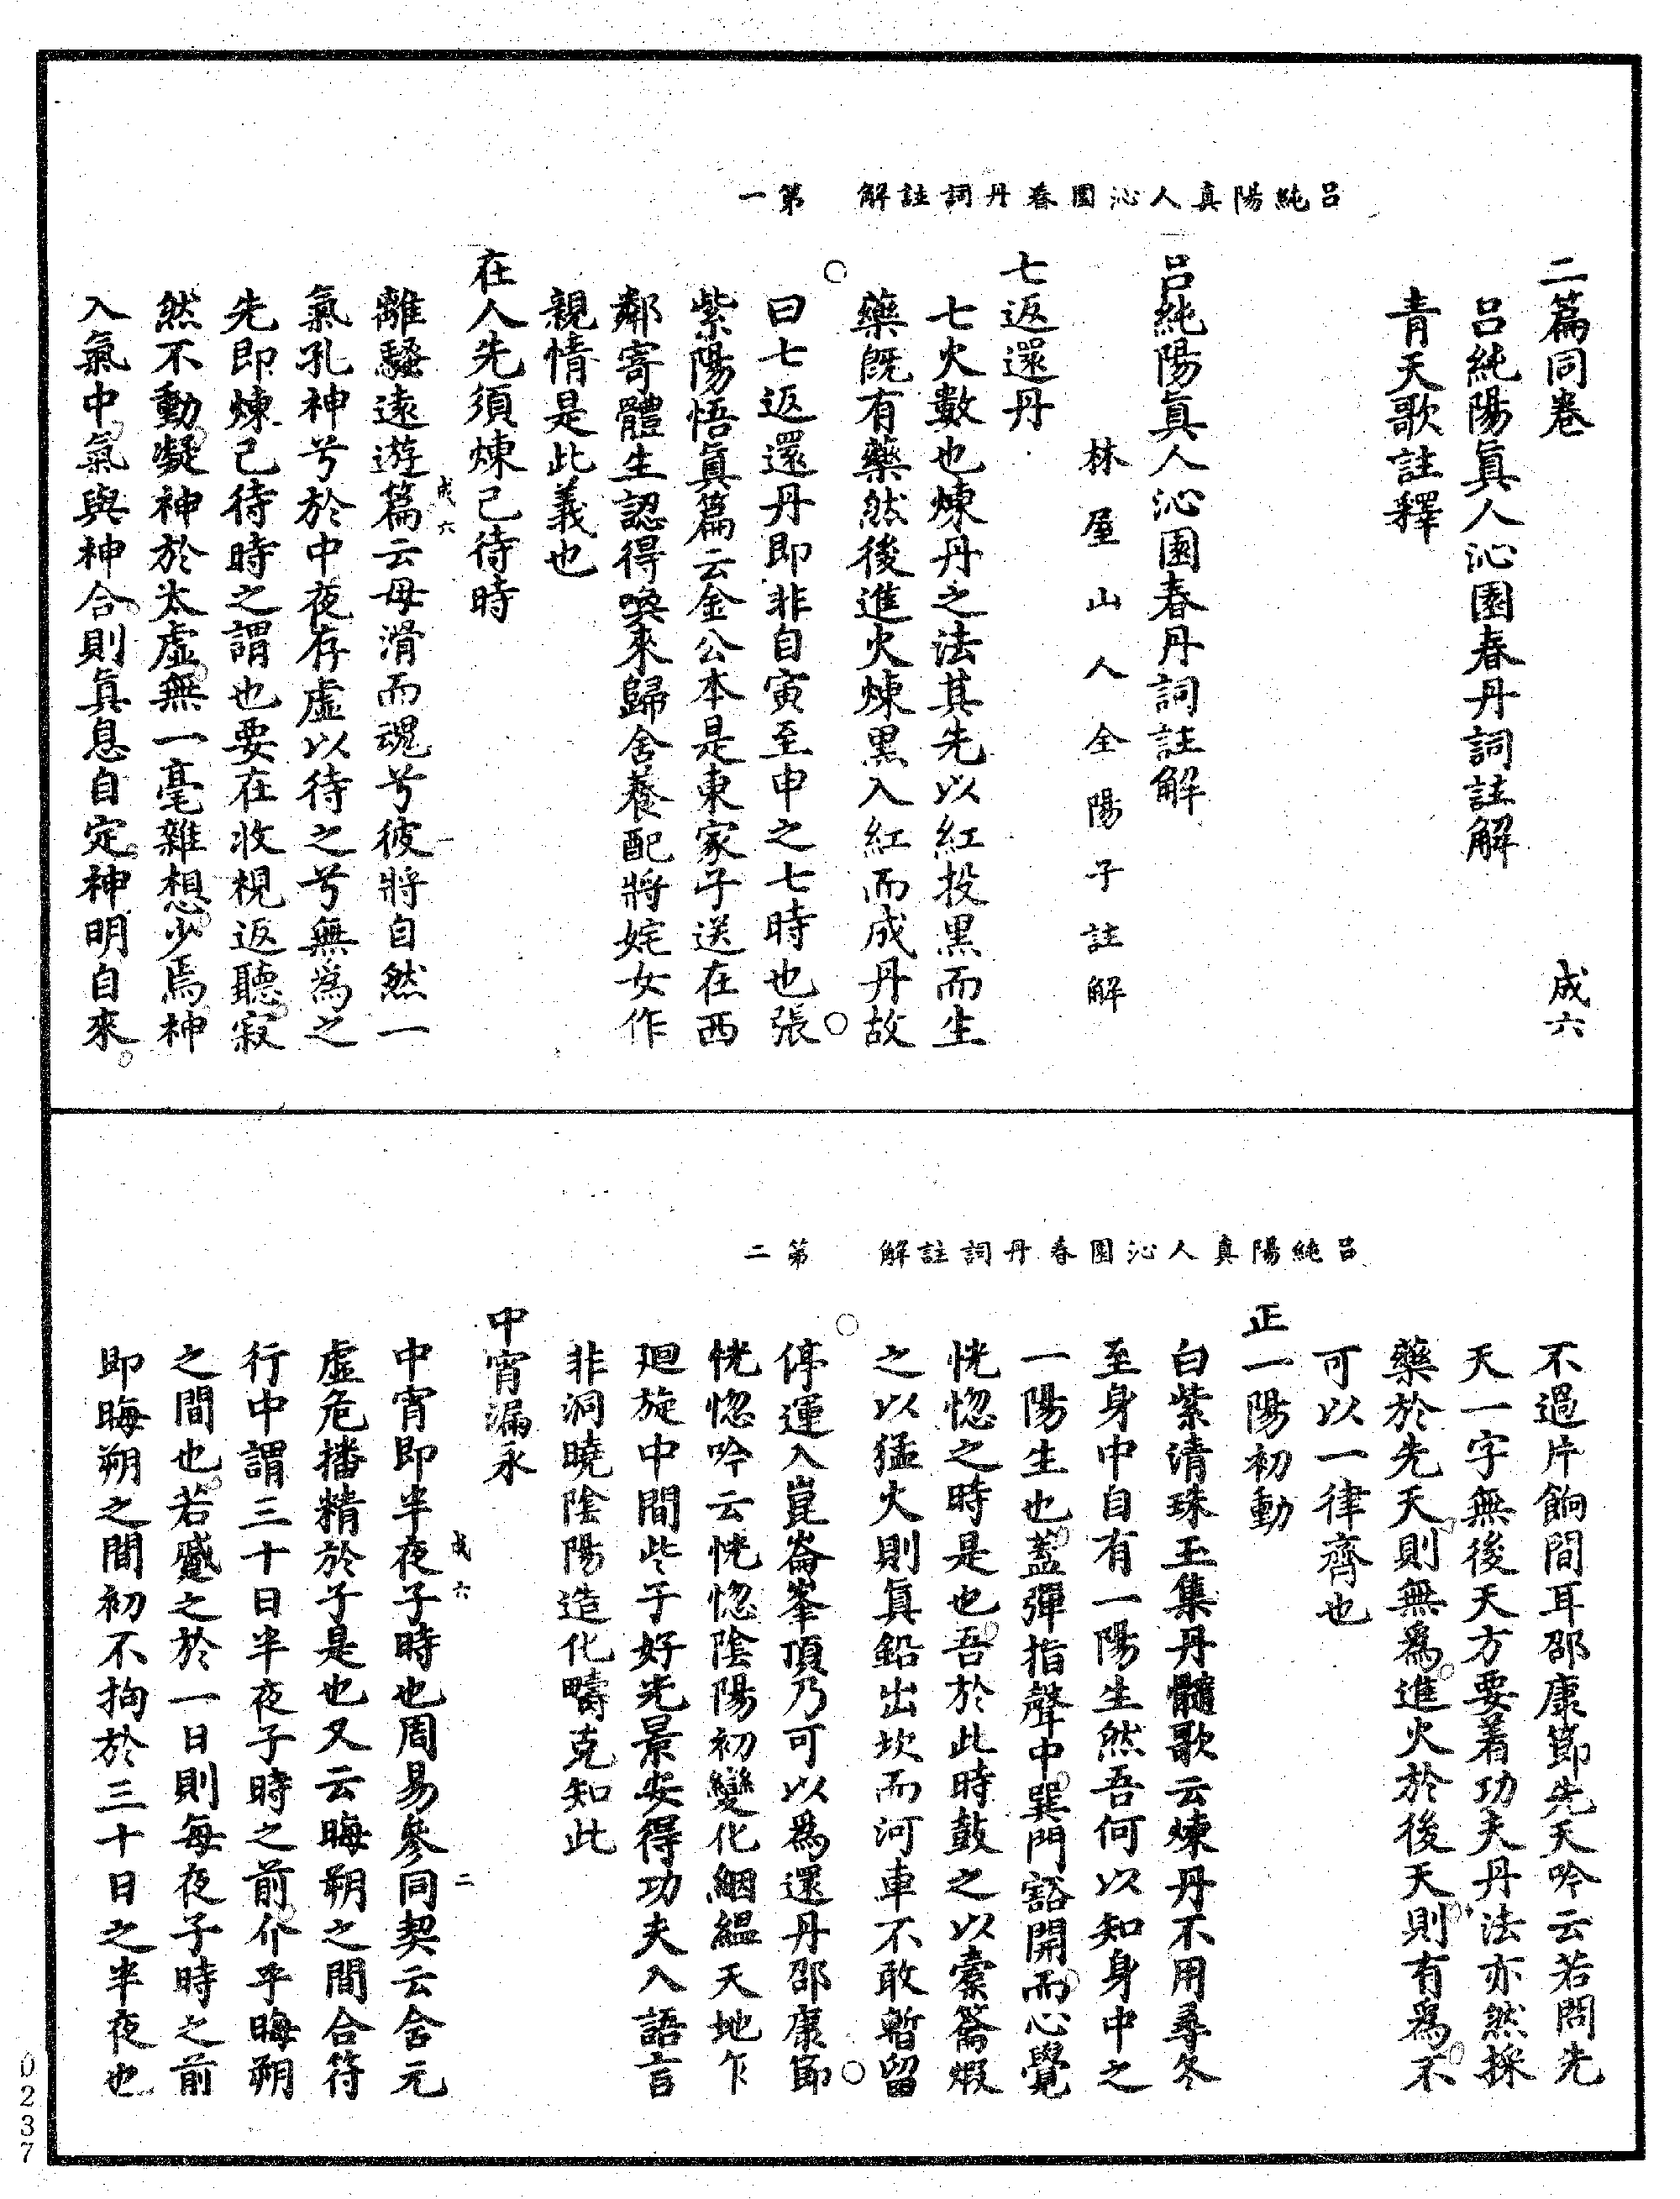 呂純陽真人沁園春丹詞註解　第一
二篇同卷　成六
呂純陽眞人沁園春丹詞註解
青天歌註釋
呂純陽眞人沁園春丹詞註解
林屋山人全陽子註解
七返還丹
七火數也煉丹之法其先以紅投黑而生
藥旣有藥然後進火煉黑入紅而成丹故
曰七返還丹即非自寅至申之七時也張
紫陽悟眞篇云金公本是東家子送在西
鄰寄體生認得喚來歸舍養配將姹女作
親情是此義也
在人先須煉己待時
成六　一
離騷遠遊篇云毋滑而魂兮彼將自然一
氣孔神兮於中夜存虛以待之兮無為之
先即煉己待時之謂也要在收視返聽寂
然不動凝神於太虛無一毫雜想少焉神
入氣中氣與神合則眞息自定神明自來
呂純陽真人沁園春丹詞註解　第二
不過片餉間耳邵康節先天吟云若問先
天一字無後天方要着功夫丹法亦然採
藥於先天則無爲進火於後天則有爲不
可以一律齊也
正一陽初動
白紫清珠玉集丹髓歌云煉丹不用尋冬
至身中自有一陽生然吾何以知身中之
一陽生也蓋彈指聲中巽門豁開而心覺
恍惚之時是也吾於此時鼓之以橐籥煅
之以猛火則眞鉛出坎而河車不敢暫留
停運入崑崙峯頂乃可以爲還丹邵康節
恍惚吟云恍惚陰陽初變化絪縕天地乍
廻旋中間些子好光景安得功夫入語言
非洞曉陰陽造化疇克知此
中宵漏永
成六　二
中宵即半夜子時也周易參同契云含元
虛危播精於子是也又云晦朔之間合符
行中謂三十日半夜子時之前介乎晦朔
之間也若蹙之於一日則每夜子時之前
即晦朔之間初不拘於三十日之半夜也
0237